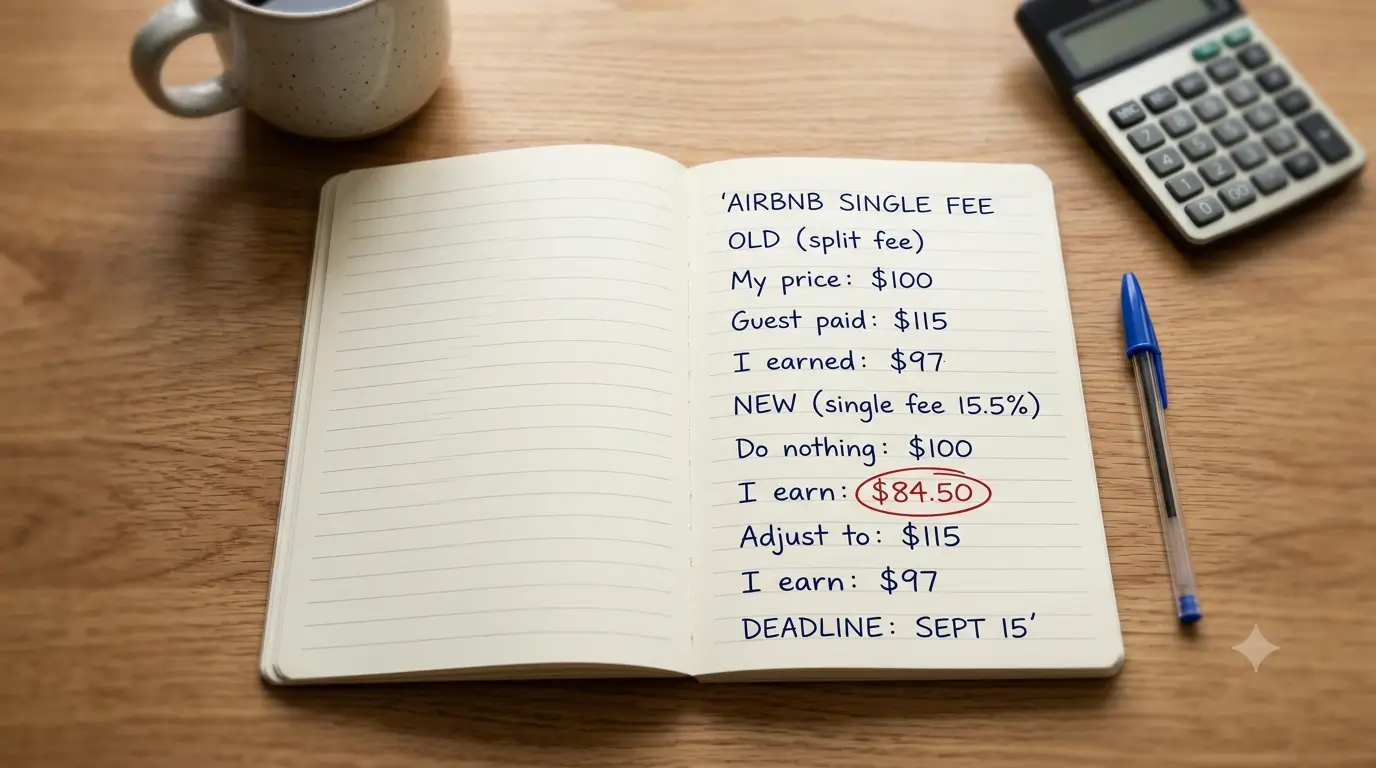 'AIRBNB SINGLE FEE
OLD (split fee)
My price: $100
Guest paid: $115
I earned: $97
NEW (single fee 15.5%)
Do nothing: $100
I earn: $84.50
Adjust to: $115
I earn: $97
DEADLINE: SEPT 15'